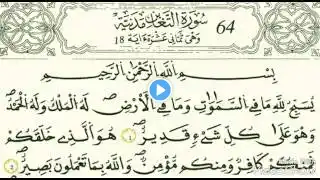 سُورَةُ التَّغَابُنِ مَدَنِيَّة 64
وَهِيَ ثَمَانِي عَشْرَةَ اٰيَة 18
بِسْمِ اللّٰهِ الرَّحْمٰنِ الرَّحِيْمِ
يُسَبِّحُ لِلّٰهِ مَا فِي السَّمٰوٰتِ وَمَا فِي الْاَرْضِ لَهُ الْمُلْكُ وَلَهُ الْحَمْدُ
وَهُوَ عَلٰى كُلِّ شَيْءٍ قَدِيْرٌ ١ هُوَ الَّذِيْ خَلَقَكُمْ
فَمِنْكُمْ كَافِرٌ وَمِنْكُمْ مُؤْمِنٌ وَاللّٰهُ بِمَا تَعْمَلُوْنَ بَصِيْرٌ ٢